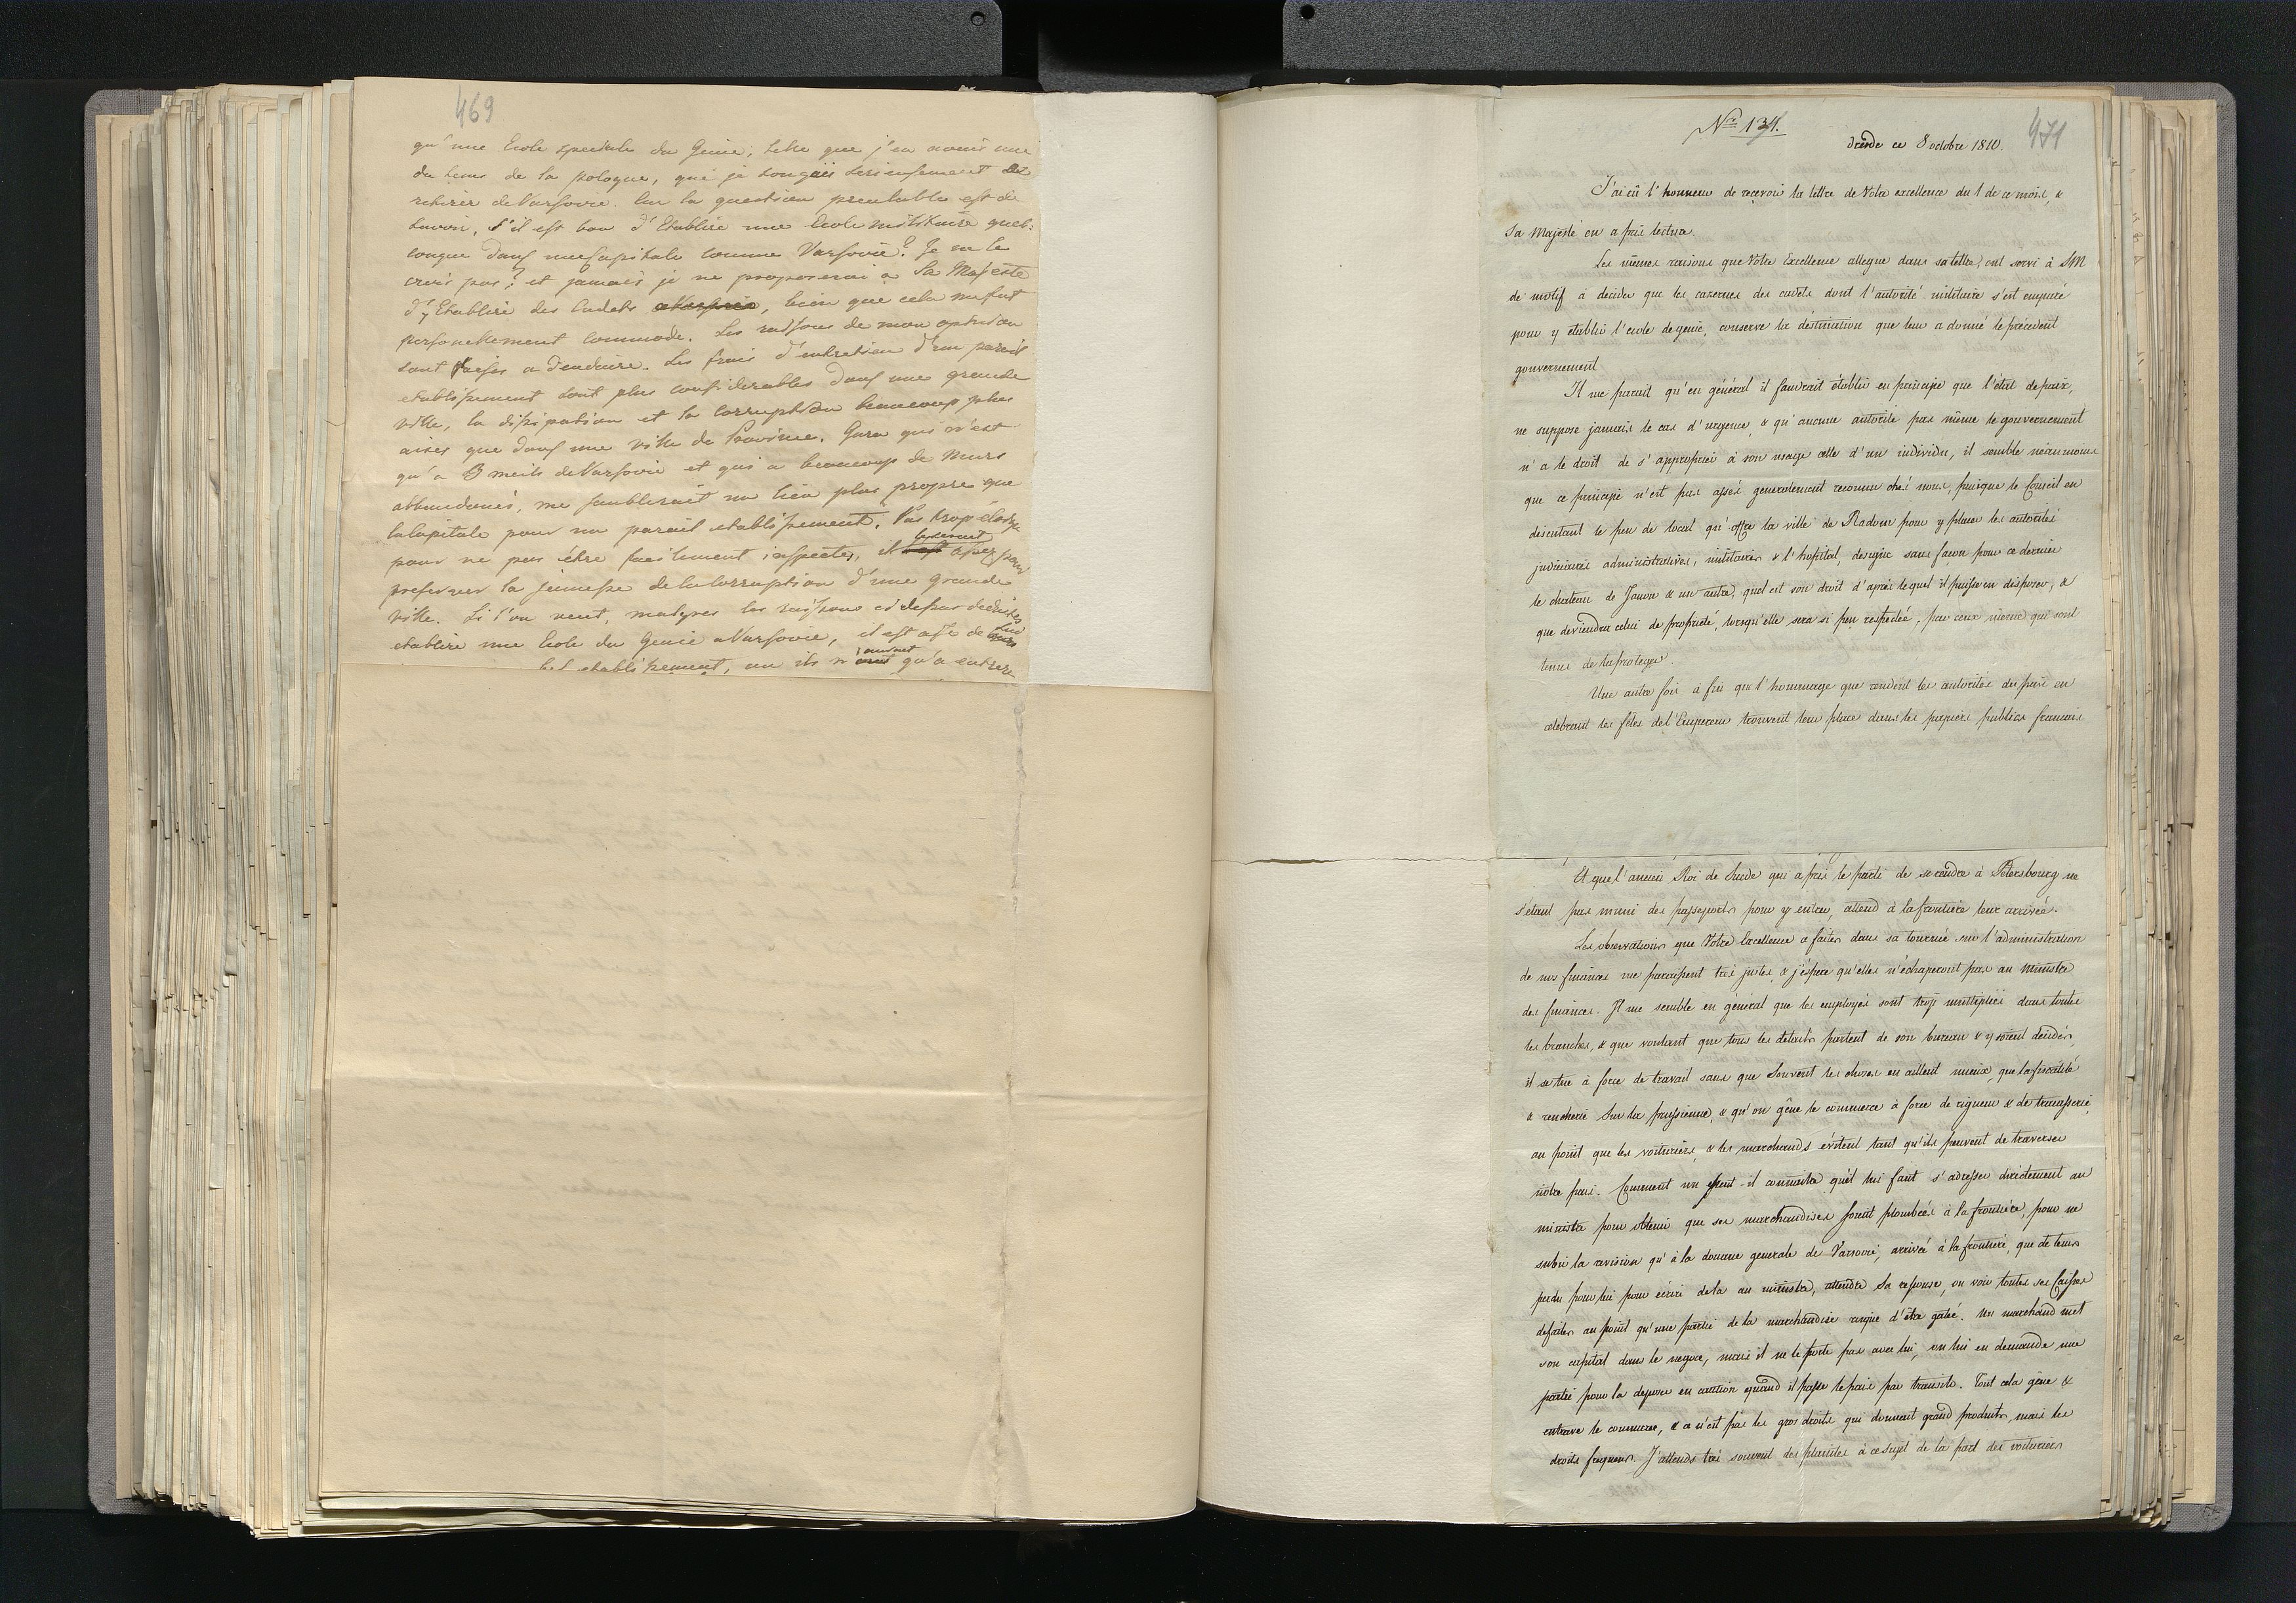 469
qu'une Ecole speciale du Genie, telle que j'en avais une
du tems de la pologne, que je songais serieusement de
retirer de Varsovie. Car la question prealable est de
savoir, s'il est bon d'Etablire une Ecole militaire quel:
conque dans une Capitale comme Varsovie? Je ne le
crois pas; et jamais je ne proposerai a Sa Majesté
d'y Etablire des Cadets a Varsovie, bien que cela me fut
personellement commode. Les raisons de mon opinion
sont faciles a deduire. Les frais d'entretien d'un pareil
etablissement sont plus considerables dans une grande
ville, la dissipation et la corruption beaucoup plus
aisés que dans une ville de Province. Gura qui n'est
qu'a 3 meils de Varsovie et qui a beaucoup de Murs
abbandonnés, me semblerait un lieu plus propre que
la Capitale pour un pareil etablissement. Pas trop eloigné
pour ne pas être facilement inspectés, il le serait assez pour
preserver la jeunesse de la Corruption d'une grande
ville. Si l'on veut, malgres les raisons ci dessus deduites
etablire une Ecole du Genie a Varsovie, il est aisé de
tel etablissement, ou ils n'auront qu'a entrer
Nro 134.
471
dresde ce 8 octobre 1810.
J'ai eü l'honneur de recevoir la lettre de Votre excellence du 1 de ce mois, &
Sa Majesté en a pris lecture.
Les mêmes raisons que Votre Excellence allegue dans sa lettre, ont servi à SM
de motif à decider que les casernes des cadets dont l'autorité militaire s'est emparé
pour y etablir l'ecole de genie, conserve la destination que leur a donné le précedent
gouvernement
Il me parait qu'en général il faudrait établir en principe que l'état de paix,
ne suppose jamais le cas d'urgence, & qu'aucune autorité pas même le gouvernement
n'a le droit de s'approprier à son usage celle d'un individu, il semble néanmoins
que ce principe n'est pas assés generalement reconnu chés nous, puisque le Conseil en
discutant le peu de local qu'offre la ville de Radom pour y placer les autorités
judiciaires administratives, militaires & l'hopital, designe sans façon pour ce dernier
le chateau de Janow & un autre, quel est son droit d'après lequel il puisse en disposer, &
que deviendra celui de propriété, lorsqu'elle sera si peu respectée, par ceux même qui sont
tenus de la proteger.
Une autre fois à fin que l'hommage que rendent les autorités du pais en
celebrant les fêtes de l'Empereur trouvent leur place dans les papiers publics francais
Et que l'ancien Roi de Suede qui a pris le parti de se rendre à Petersbourg ne
s'etant pas muni des passeports pour y entrer, attend à la frontiere leur arrivée.
Les observations que Votre Excellence a faites dans sa tournée sur l'administration
de nos finances me paraissent très justes, & j'éspere qu'elles n'échaperont pas au ministre
des finances. Il me semble en général que les employés sont trop multipliés dans toutes
les branches, & que voulant que tous les details partent de son bureau & y soient decidés,
il se tue à force de travail sans que Souvent les choses en aillent mieux, que la fiscalité
a rencheri Sur la prussienne, & qu'on gêne le commerce à force de rigueur & de tracasserie
au point que les voituriers, & les marchands évitent tant qu'ils peuvent de traverser
notre pais. Comment un peut-il connaitre qu'il lui faut s'adresser directement au
ministre pour obtenir que ses marchandises soient plombées à la frontière, pour ne
subir la revision qu'à la douane generale de Varsovie, arrivée à la frontiere, que de tems
perdu pour lui pour écrire dela au ministre, attendre Sa reponse, ou voir toutes ses Caisses
defaites au point qu'une partie de la marchandise risque d'être gatée. Un marchand met
son capital dans le negoce, mais il ne le porte pas avec lui, on lui en demande une
partie pour la deposer en caution quand il passe le pais par transito. Tout cela gêne &
entrave le commerce, & ce n'est pas les gros droits qui donnent grand produits, mais les
droits frequens. J'attends très souvent des plaintes à ce sujet de la part des voituriers